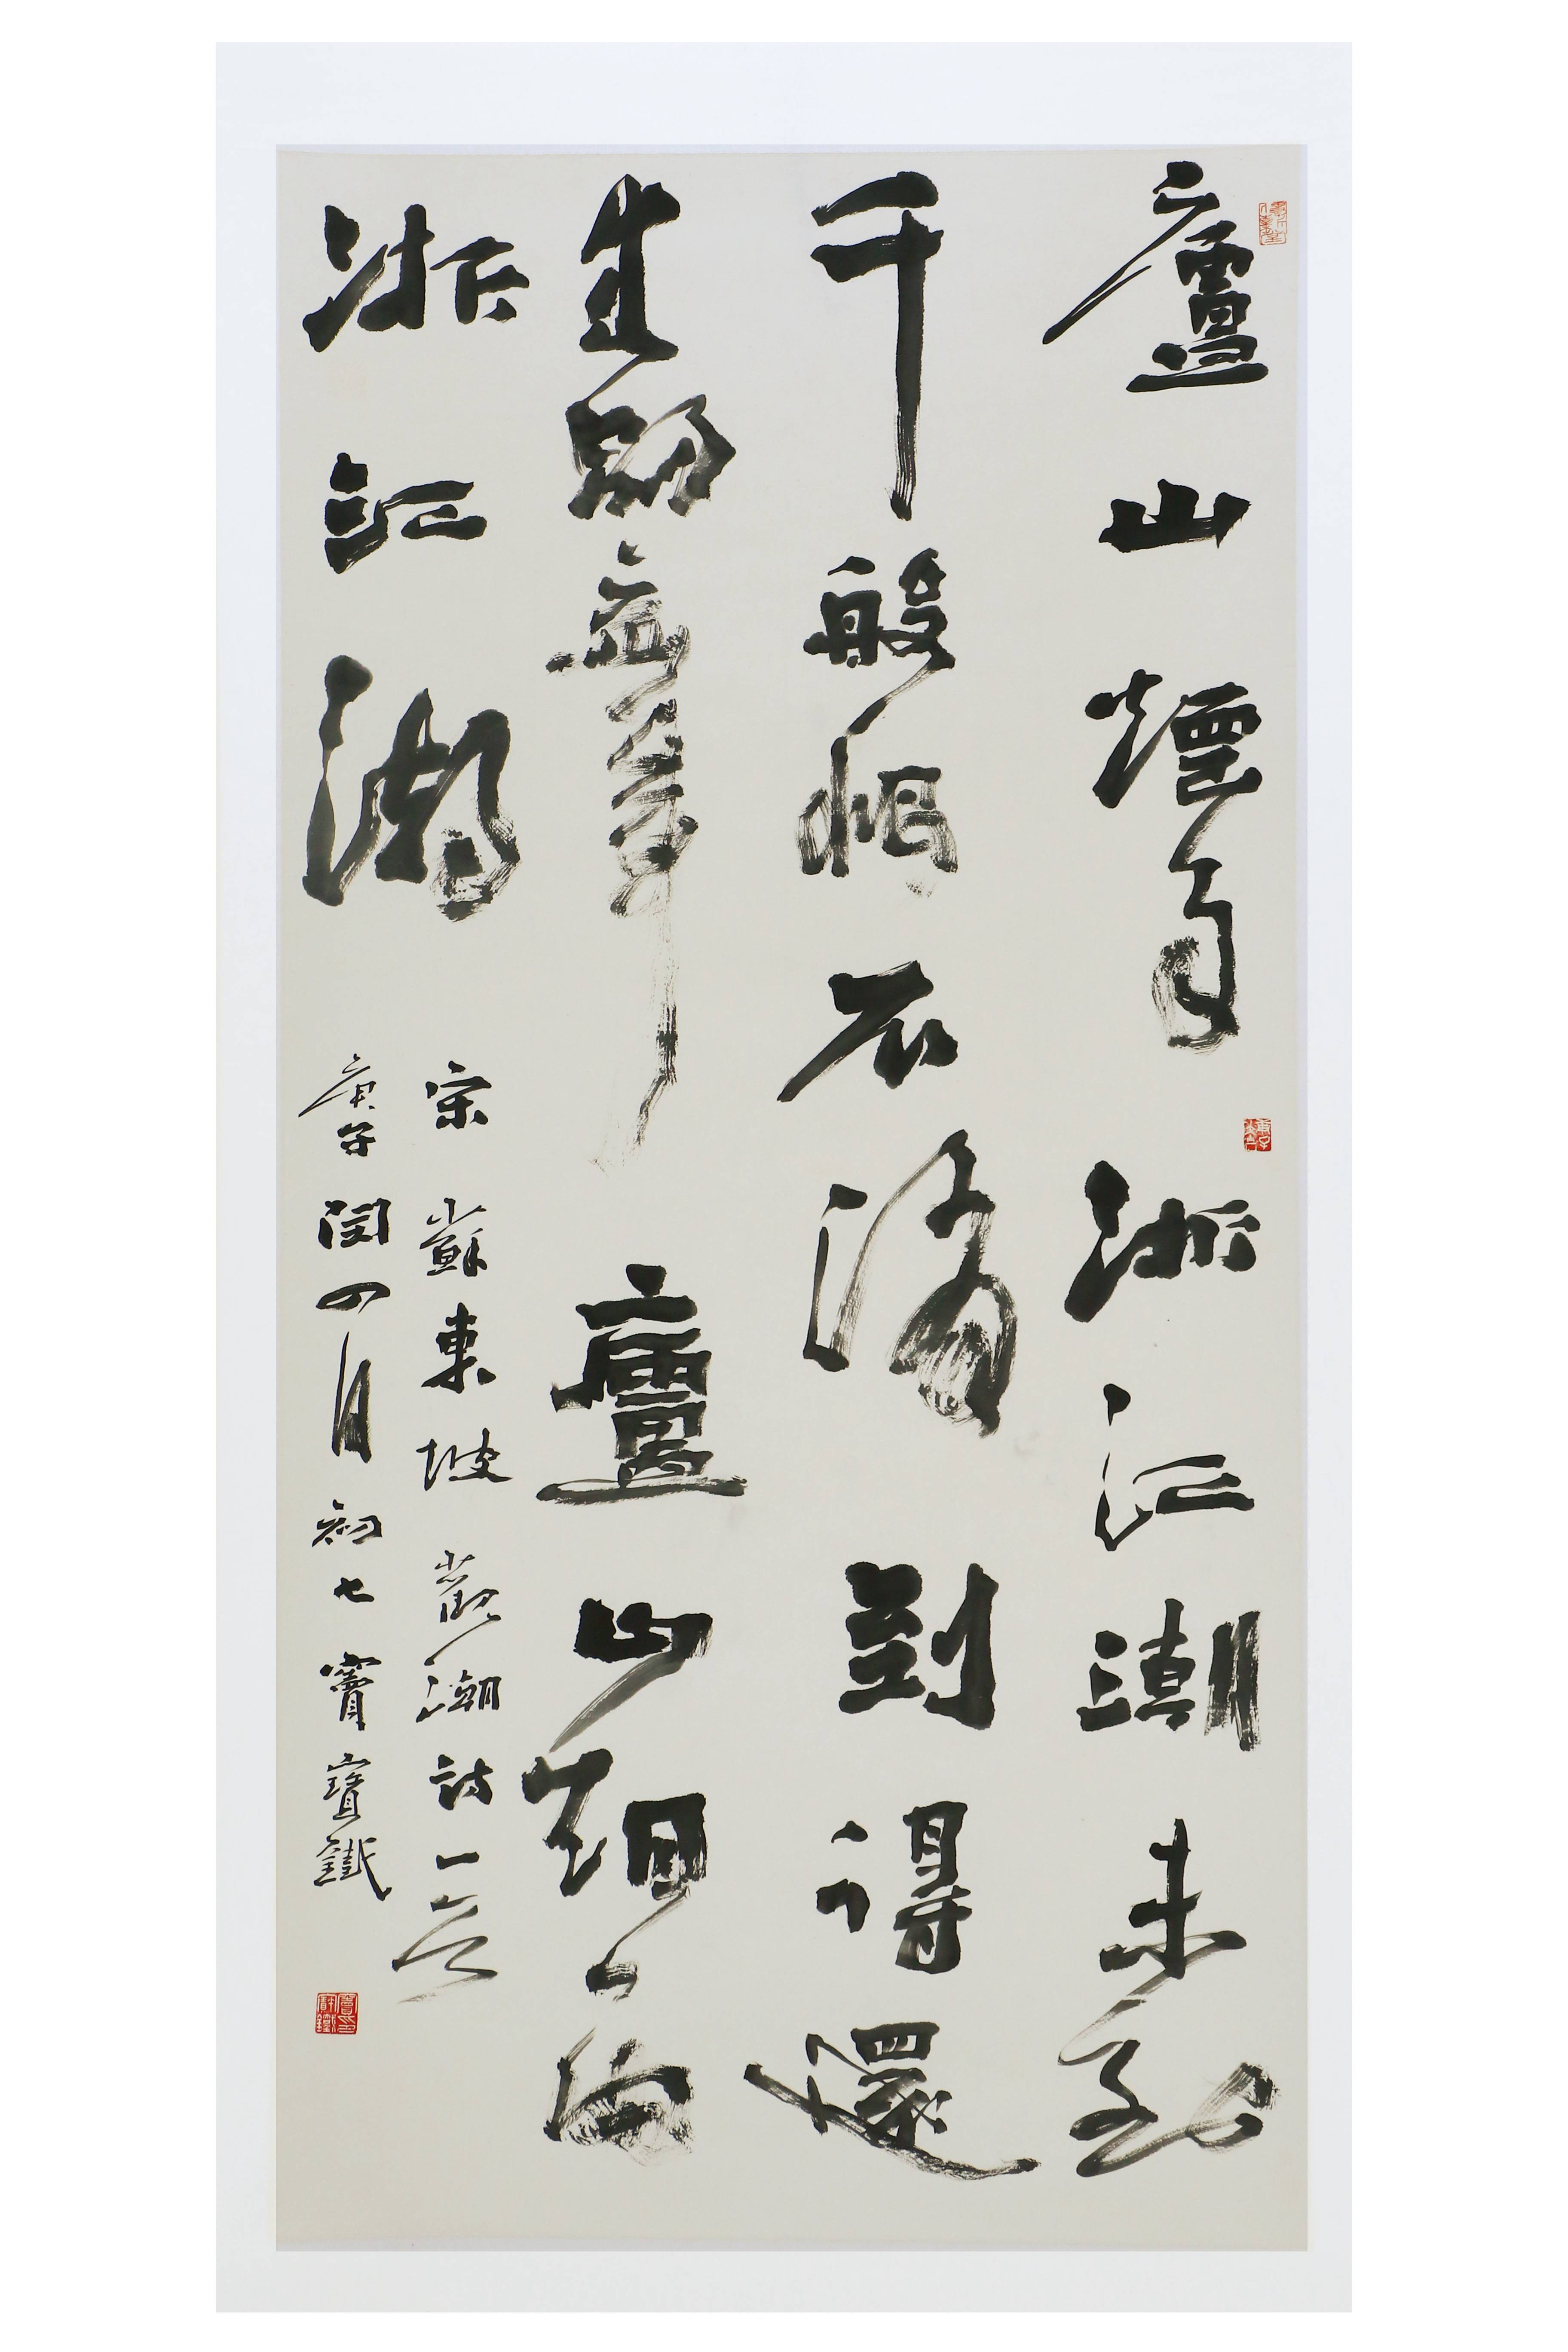 廬山煙雨浙江潮未到
千般恨不消到得還
来別無事廬山烟雨
浙江潮
宋蘇東坡觀潮詩一首
庚子閏四月初七竇寶鐵